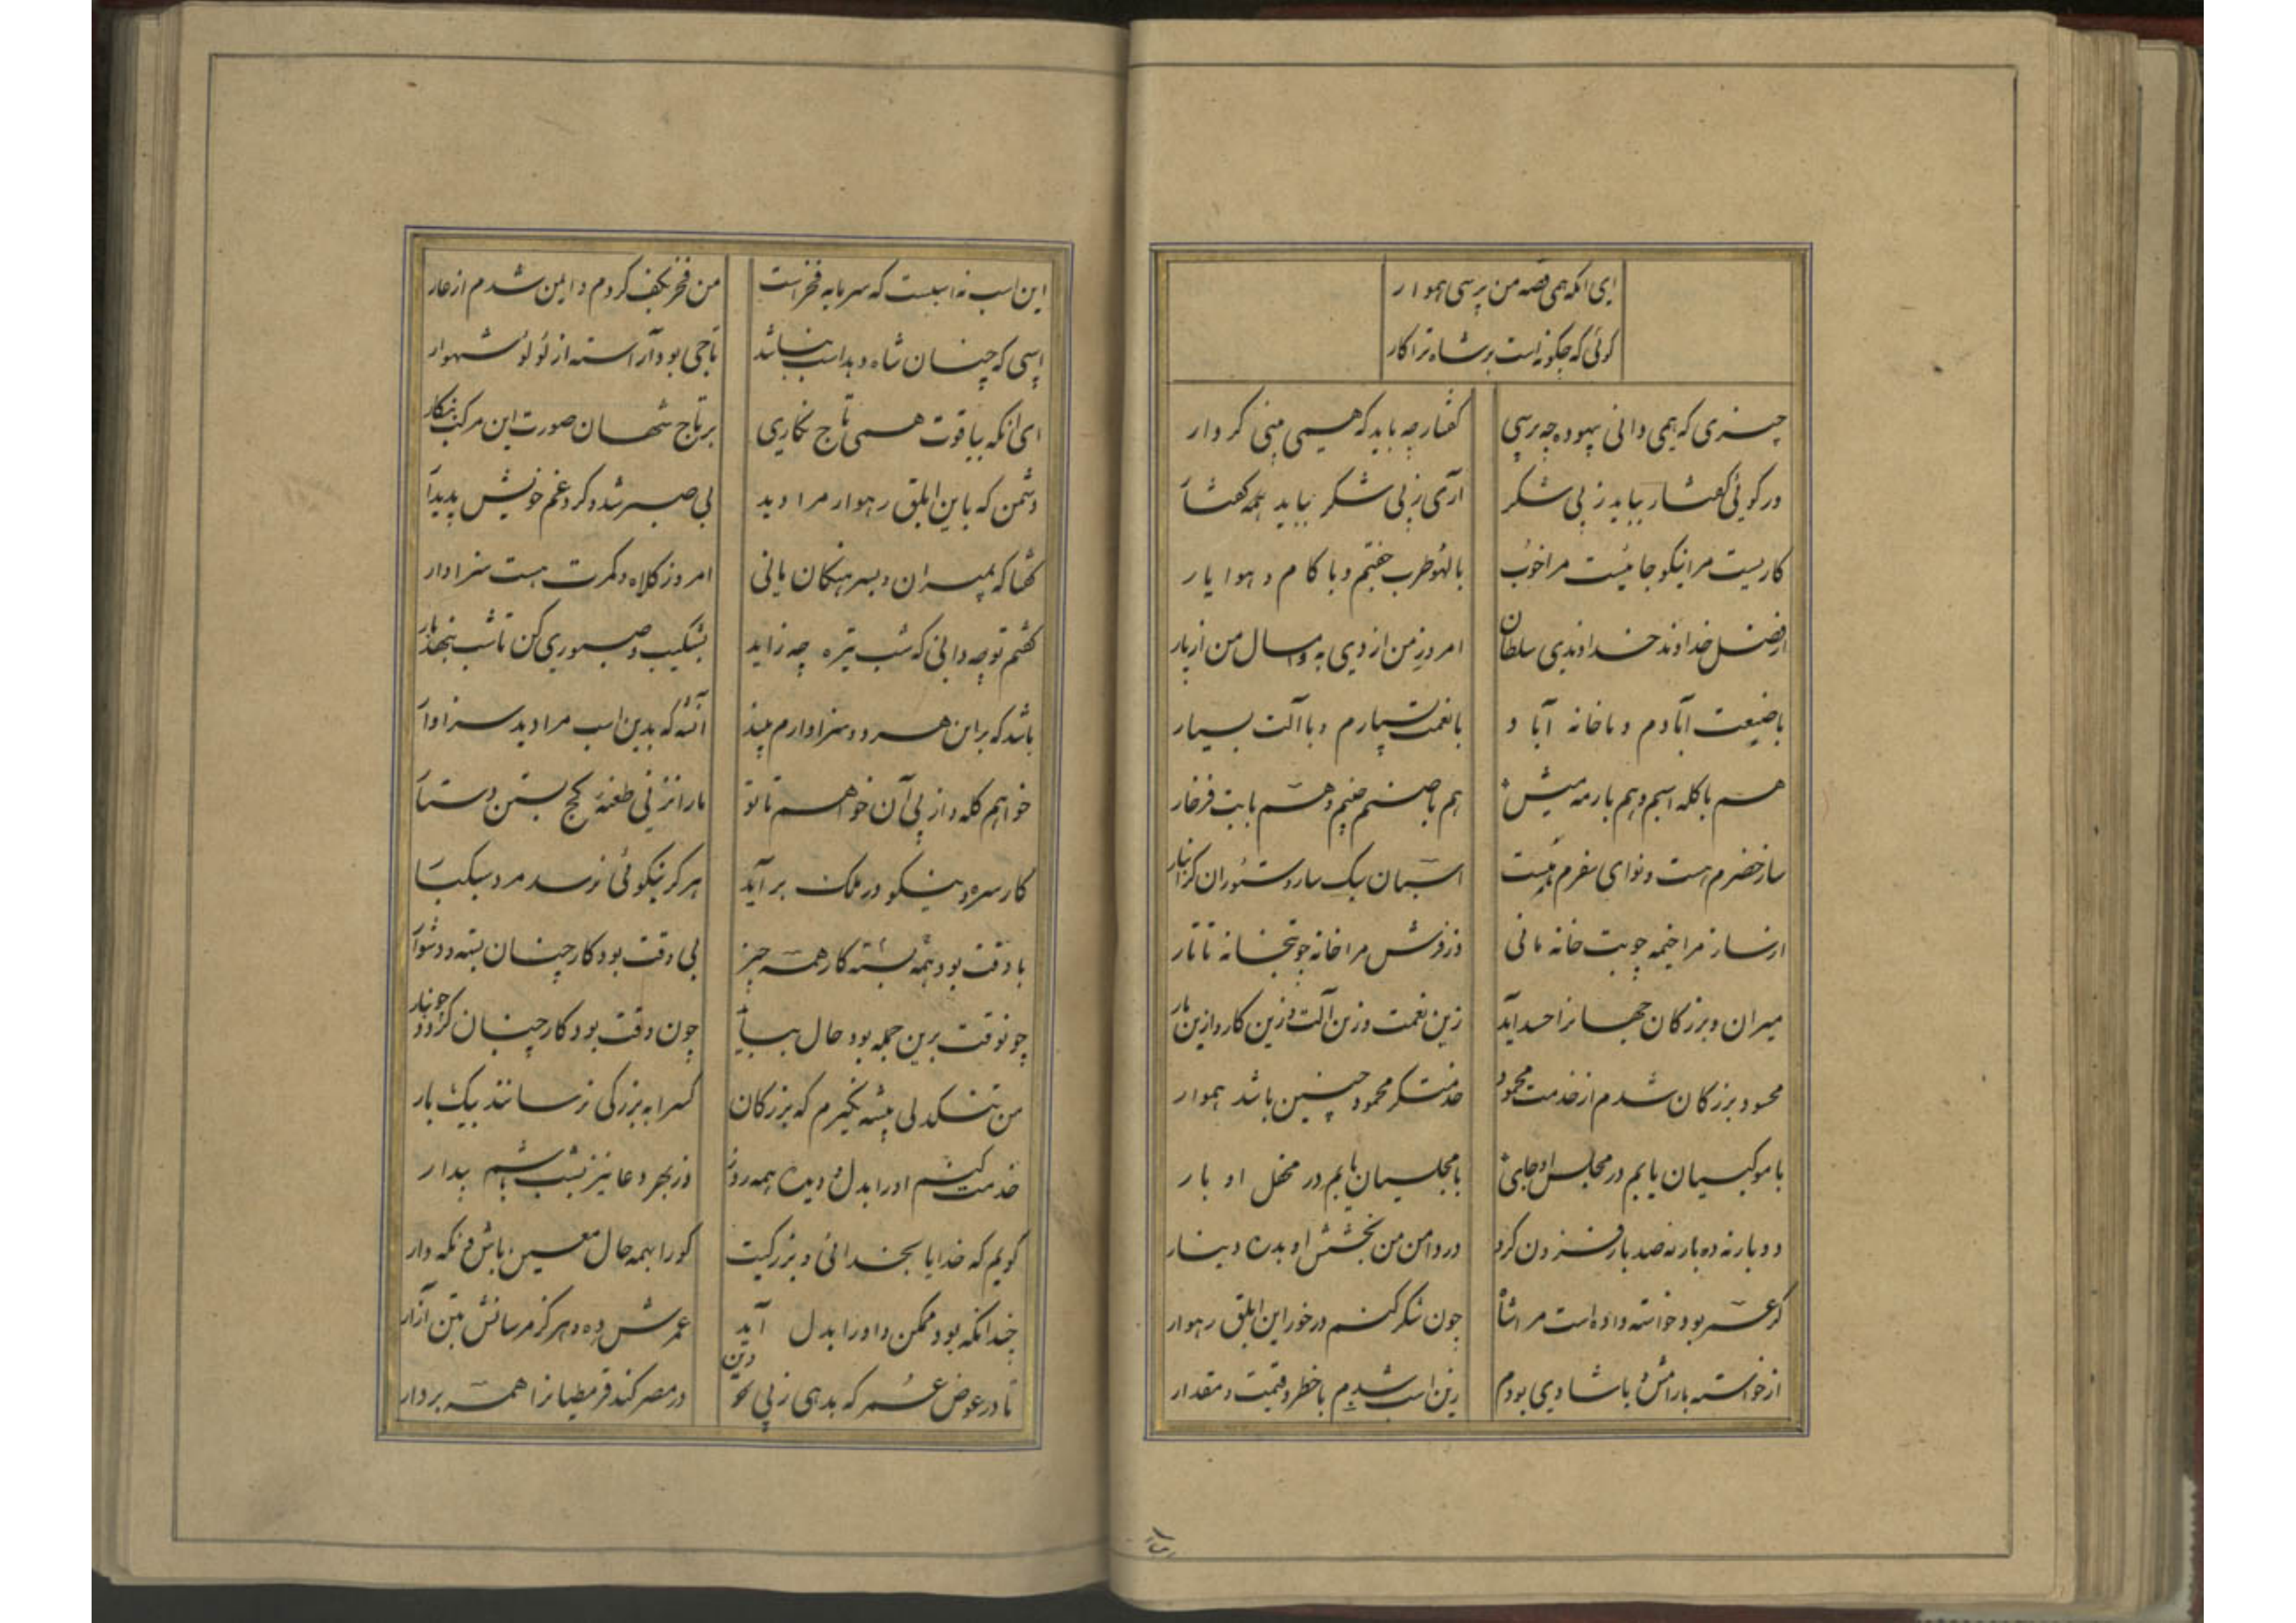 ای آنکه همی قصه من پرسی هموار
کوئی که چکونه است بر شاه ترا کار
چیزی که همی دانی بیهوده چه پرسی
کفتار چه باید که همی بینی کردار
ور کوئی کفتار بباید ز پی شکر
آری ز پی شکر بباید همه کفتار
کاریست مرا نیکو جائیست مرا خوب
با لهو طرب جفتم و با کام و هوا یار
از فضل خداوند خداوندی سلطان
امروز من از دی به و امسال من از پار
با ضیعت آبادم و با خانه آباد
با نعمت بسیارم و با آلت بسیار
هم با کله اسبم و هم با رمه میش
هم با صنم چینم و هم با بت فرخار
ساز حضرم هست و نوای سفرم هست
اسبان سبک سار و ستوران کرانبار
از ساز مرا خیمه چو بت خانه مانی
وز فرش مرا خانه چو بتخانه تاتار
میران و بزرکان جهانرا حسد آید
زین نعمت و زین آلت و زین کار و ازین بار
محسود بزرکان شدم از خدمت محمود
خدمتکر محمود چنین باشد هموار
با موکبیان یابم در مجلس او جای
با مجلسیان یابم در محفل او بار
دو بار نه ده بار نه صد بار فزون کرد
در دامن من بخشش او بدره دینار
کر عسر بود خواسته داده است مرا شاه
چون شکر کنم در خور این ابلق رهوار
از خواسته با رامش و با شادی بودم
زین اسب شدم با خطر و قیمت و مقدار
این اسب نه اسبست که سرمایه فخر است
من فخر بکف کردم و ایمن شدم از عار
اسپی که چنان شاه دهد اسب نباشد
تاجی بود آراسته از لؤلؤ شهوار
ای آنکه بیاقوت همی تاج نکاری
بر تاج شهان صورت این مرکب بنکار
دشمن که باین ابلق رهوار مرا دید
بی صبر شد و کرد غم خویش پدیدار
کفتا که بمیران و بسرهنکان مانی
امروز کلاه و کمرت هست سزاوار
کفتم تو چه دانی که شب تیره چه زاید
بشکیب و صبوری کن تا شب بنهد بار
باشد که بر این هر دو سزاوارم بیند
آنشه که بدین اسب مرا دید سزاوار
خواهم کله و از پی آن خواهم تا تو
ما را نزنی طعنه کج بستن دستار
کار سره و نیکو درنک بر آید
هرکز نیکوئی نرسد مرد سبکسار
با وقت بود بسته همه کار همه چیز
بی وقت بود کار چنان بسته و دشوار
چون وقت برین جمله بود حال بیاید
چون وقت بود کار چنان کردد چو نار
من تنکدلی پیشه نکیرم که بزرکان
کس را به بزرکی نرسانند بیک بار
خدمت کنم او را بدل و دیده همه روز
وز بهر دعا نیز بشب باشم بیدار
کویم که خدایا بخدائی و بزرکیت
کو را بهمه حال معین باش و نکه دار
چندانکه بود ممکن و او را بدل آید
عمرش ده و هرکز مرسانش بتن آزار
تا در عوض عمر که بدهی ز پی دین
در مصر کند قرمطیانرا همه بر دار